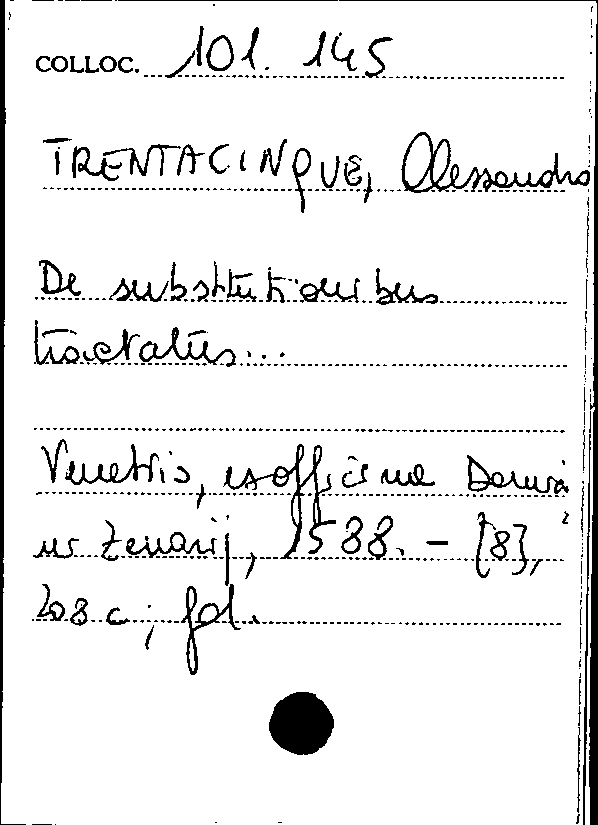 COLLOC. 101. 145
TRENTACINQUE, Alessandro
De substitutionibus
tractatus...
Venetiis, ex officina Damia
ni Zenarij, 1588. - [8],
208 c.; fol.